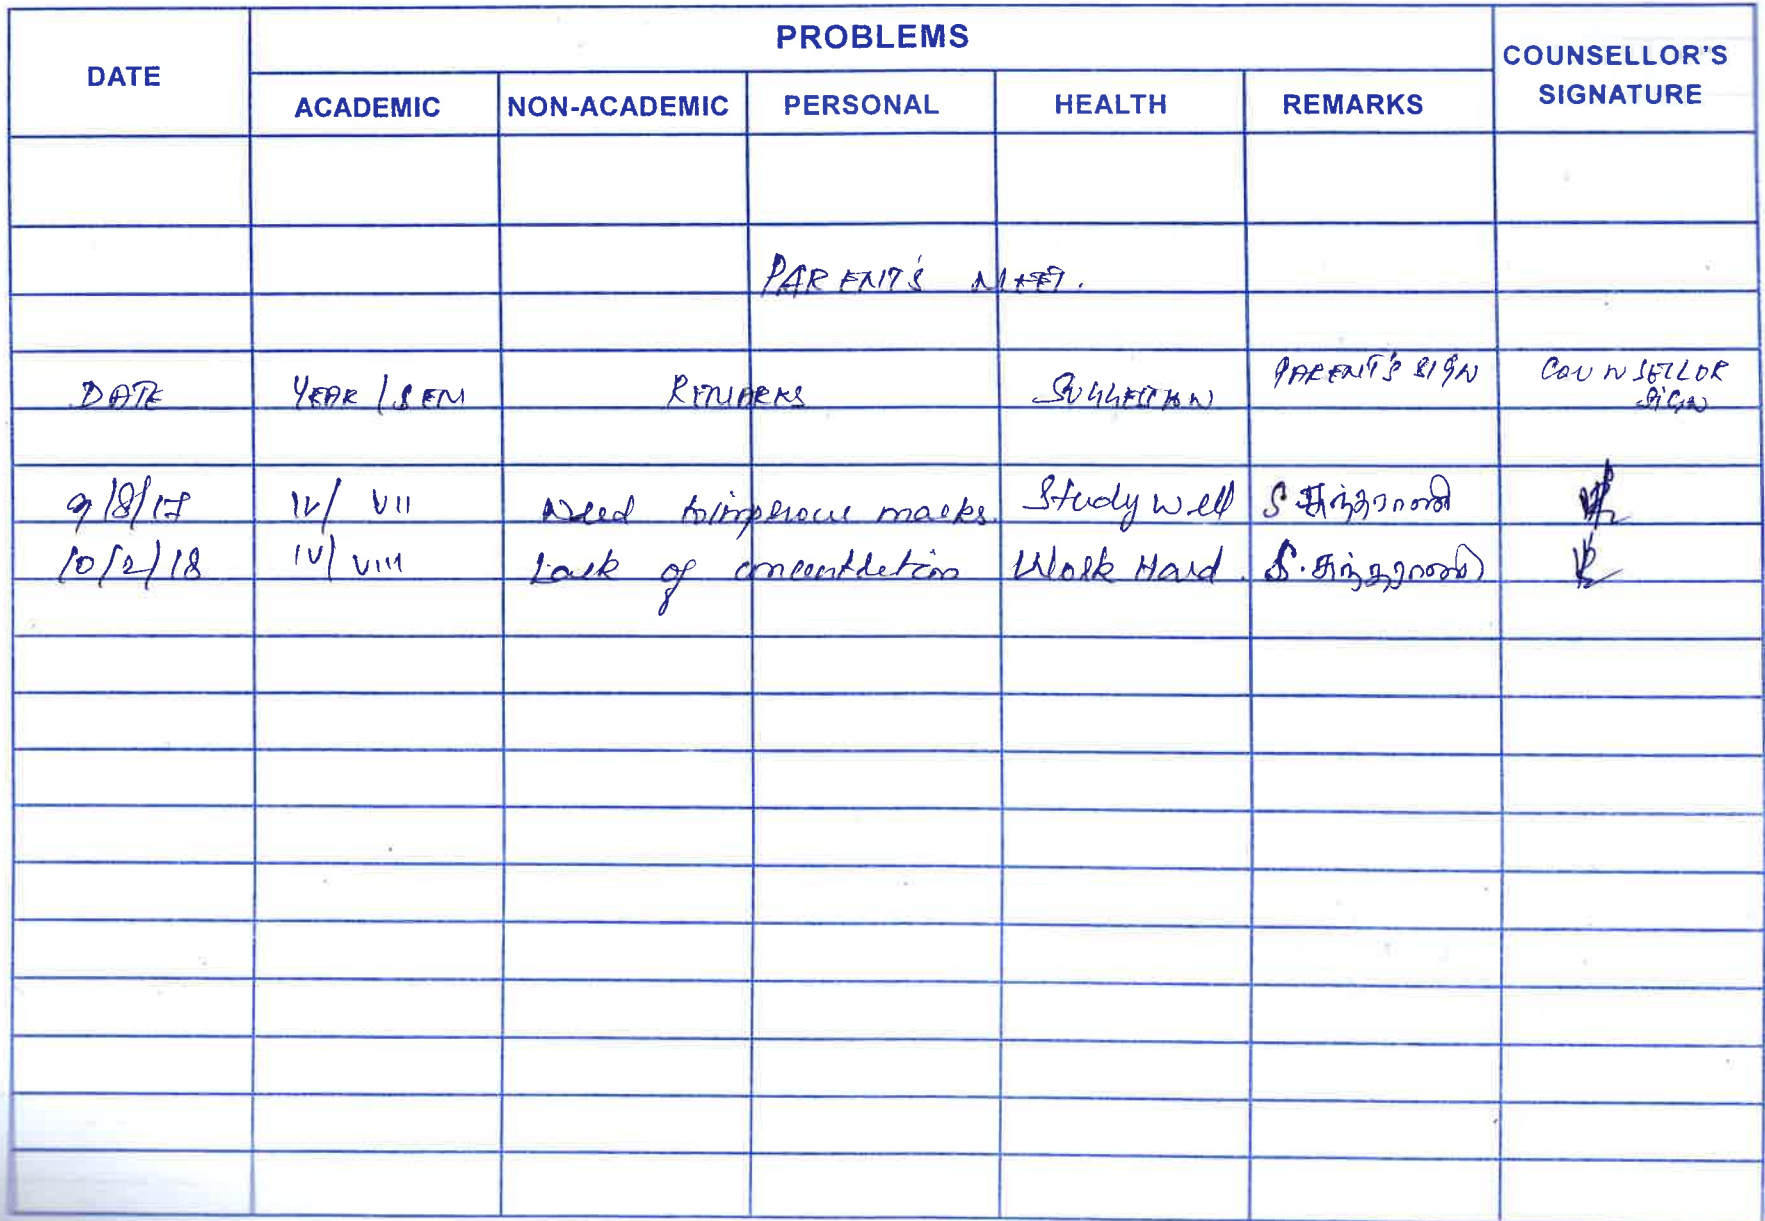 DATE PROBLEMS COUNSELLOR'S SIGNATURE
ACADEMIC NON-ACADEMIC PERSONAL HEALTH REMARKS
PARENT'S MEET.
DATE YEAR / SEM REMARKS SUGGESTION PARENT'S SIGN COUNSELLOR SIGN
9/8/17 IV/ VII Need to improve marks. Study well S
10/2/18 IV/ VIII Lack of concentration Work Hard. S.